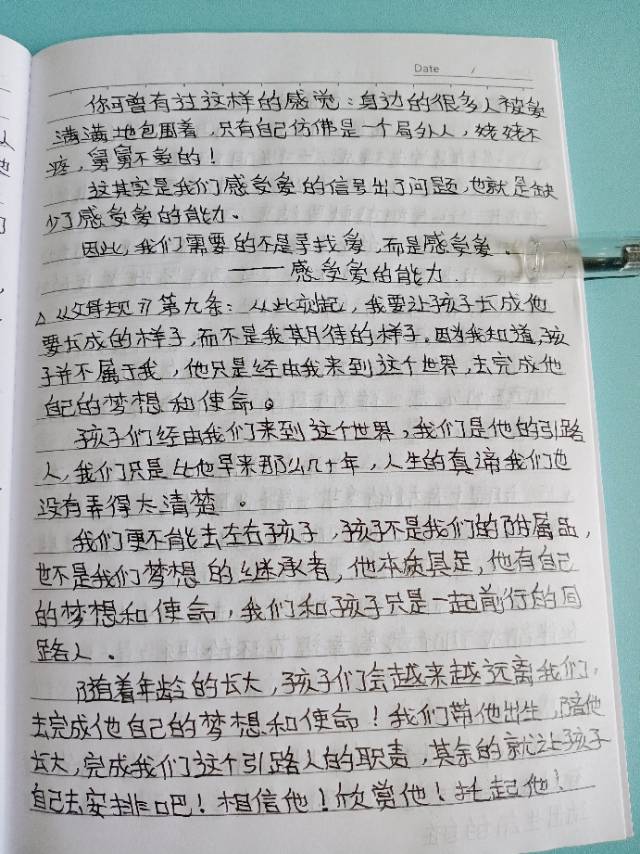 Date /
你可曾有过这样的感觉：身边的很多人被爱
满满地包围着，只有自己仿佛是一个局外人，姥姥不
疼，舅舅不爱的！
这其实是我们感受爱的信号出了问题，也就是缺
少了感受爱的能力。
因此，我们需要的不是寻找爱，而是感受爱。
——感受爱的能力.
△父母规7 第九条：从此刻起，我要让孩子长成他
要长成的样子，而不是我期待的样子。因为我知道，孩
子并不属于我，他只是经由我来到这个世界，去完成他
自己的梦想和使命。
孩子们经由我们来到这个世界，我们是他的引路
人，我们只是比他早来那么几十年，人生的真谛我们也
没有弄得太清楚。
我们更不能去左右孩子，孩子不是我们的附属品，
也不是我们梦想的继承者，他本质具足，他有自己
的梦想和使命，我们和孩子只是一起前行的同
路人。
随着年龄的长大，孩子们会越来越远离我们，
去完成他自己的梦想和使命！我们带他出生，陪他
长大，完成我们这个引路人的职责，其余的就让孩子
自己去安排吧！相信他！欣赏他！托起他！